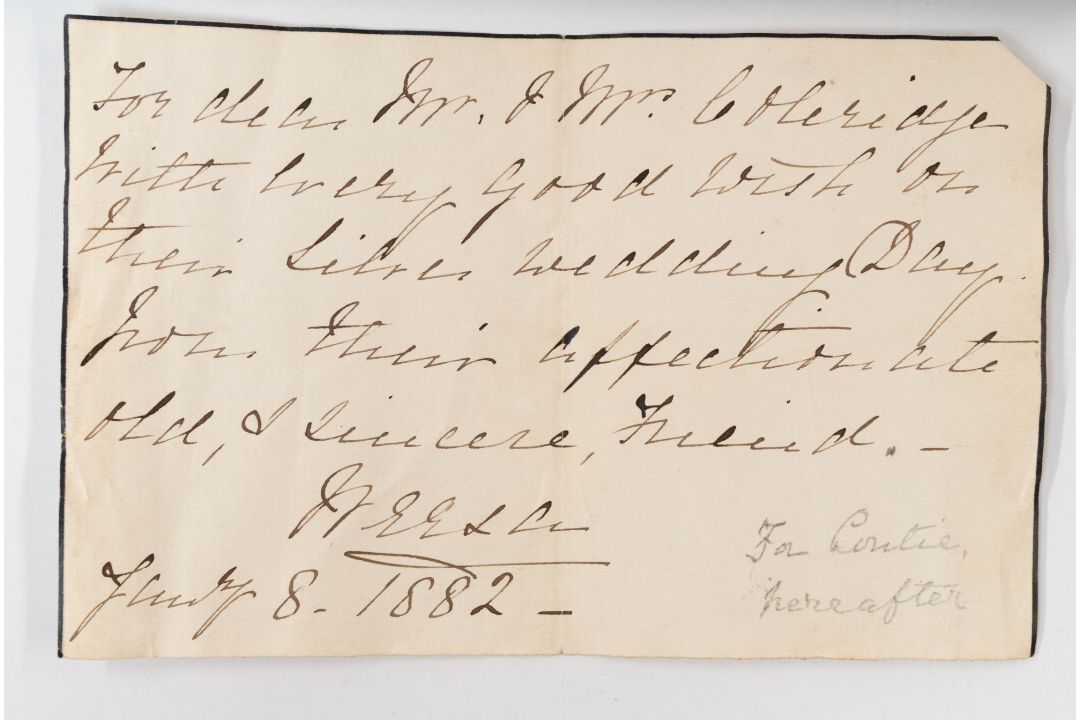 For dear Mr. & Mrs. Coleridge
With Every good wish on
their silver wedding Day.
From their affectionate
old, & sincere, Friend. –
Jany 8 – 1882 –
For
hereafter